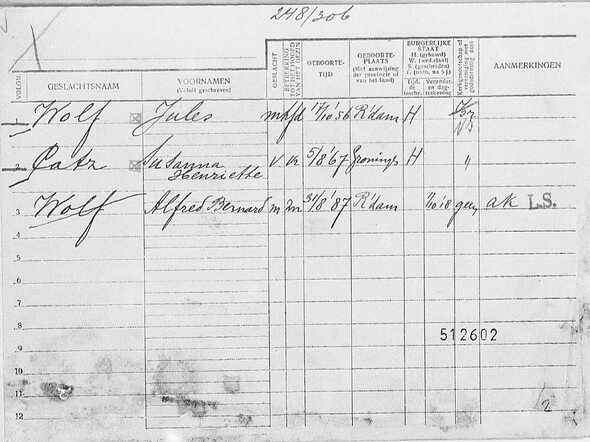 248/306
VOLGN.
GESLACHTSNAAM
VOORNAMEN
(Voluit geschreven)
GESLACHT
BETREKKING
TOT HET HOOFD
VAN HET GEZIN
GEBOORTE-
TIJD
GEBOORTE-
PLAATS
(Met aanwijzing
der provincie of
van het land)
BURGERLIJKE
STAAT
H. (gehuwd)
W. (wed.staat)
S. (gescheiden)
Kerkgenootschap of
AANMERKINGEN
1 Wolf Jules m hfd 17/10 '56 R'dam H
2 Catz Susanna Henriette v. vr 5/8 '67 Gronings H "
3 Wolf Alfred Bernard m zn 31/8 '87 R'dam 1/10 '18 geen ak L.S.
4
5
6
7
8
512602
9
10
11
12
2